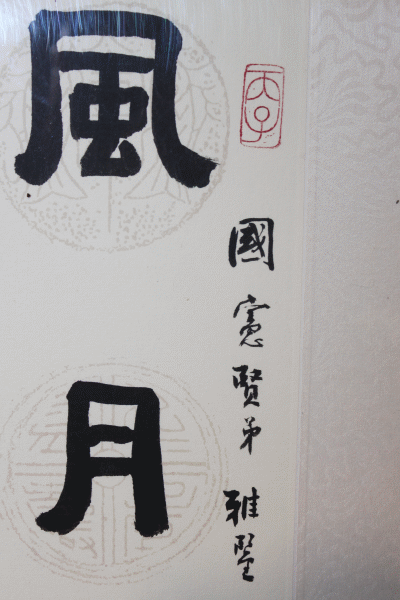 國憲賢弟 雅鑒
風月